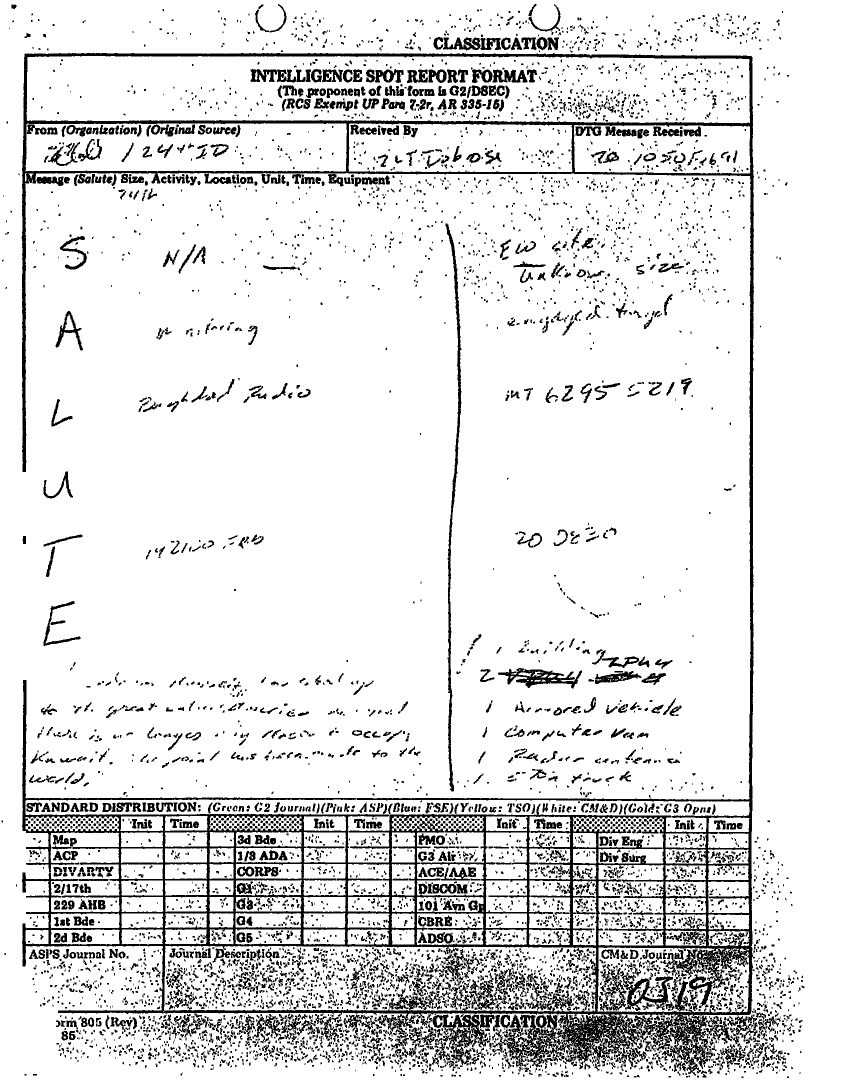 CLASSIFICATION
INTELLIGENCE SPOT REPORT FORMAT
(The proponent of this form is G2/DSEC)
(RCS Exempt UP Para 7-2r, AR 335-15)
From (Organization) (Original Source)
Received By
DTG Message Received
/ 24th ID
2LT
20 1050
Message (Salute) Size, Activity, Location, Unit, Time, Equipment
S N/A —
EW site
Unknown size
A monitoring
engaged target
L Baghdad Radio
MT 6295 5219
U
T
20 0830
E
1 Building
2 ZPU4
1 Armored vehicle
1 Computer Van
1 Radar antenna
1 5 Ton truck
has stood up
to the great
there is no longer any reason to occupy
Kuwait. The point has been made to the
world.
STANDARD DISTRIBUTION: (Green: G2 Journal)(Pink: ASP)(Blue: FSE)(Yellow: TSO)(White: CM&D)(Gold: G3 Opns)
Init Time Init Time Init Time Init Time
Map 3d Bde PMO Div Eng
ACP 1/3 ADA G3 Air Div Surg
DIVARTY CORPS ACE/AAE
2/17th G1 DISCOM
229 AHB G3 101 Avn Gp
1st Bde G4 CBRE
2d Bde G5 ADSO
ASPS Journal No. Journal Description CM&D Journal No
0319
orm 805 (Rev)
85
CLASSIFICATION